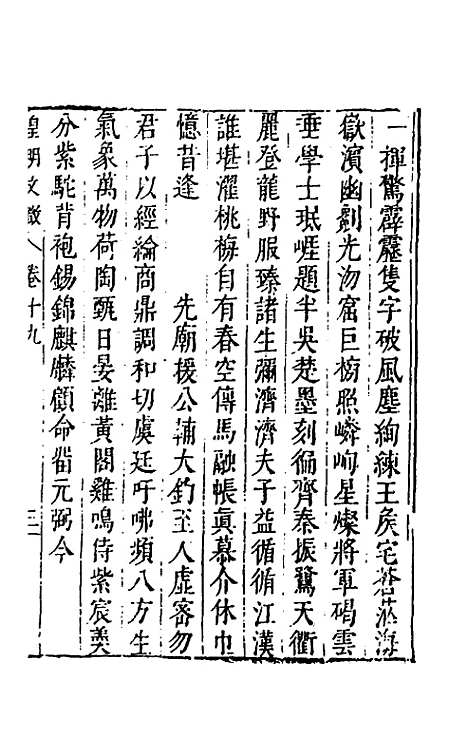 一揮驚霹靂隻字破風塵絢練王矦宅蒼茫海
嶽濱幽劉光沕窟巨榜照嶙峋星燦將軍碣雲
垂學士珉崕題半吳楚墨刻徧齊秦振鷺天衢
麗登龍野服臻諸生彌濟濟夫子益循循江漢
誰堪濯桃梅自有春空傳馬融帳眞慕介休巾
憶昔逢 先廟援公輔大鈞至人虛宻勿
君子以經綸商鼎調和切虞廷吁咈頻八方生
氣象萬物荷陶甄日晏離黃閣雞鳴侍紫宸羹
分紫駝背袍錫錦麒麟顧命畱元弼今
皇明文徵 卷十九 三